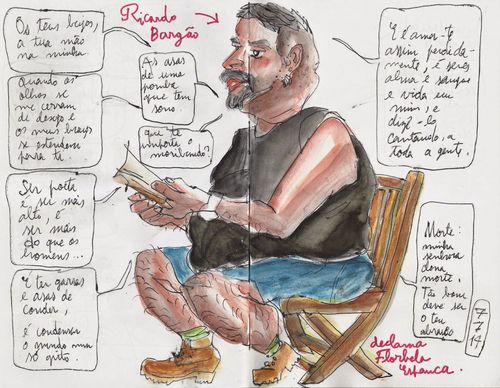 Ricardo
Bargão
Os teus beijos,
a tua mão
na minha.
As asas
de uma
pomba
que tem
sono.
Quando os
olhos se
me cerram
de desejo e
os meus braços
se estendem
para ti.
que te
importa o
moribundo?
Ser poeta
é ser mais
alto, é
ser mais
do que os
homens...
E ter garras
e asas de
condor,
é condensar
o mundo num
só grito.
E é amar-te
assim perdida-
mente, é seres
alma e sangue
e vida em
mim, e
dizê-lo
cantando, a
toda a gente.
Morte:
minha
senhora
dona
morte.
Tão bom
deve ser
o teu
abraço
7
7
14
declama
Florbela
Espanca.